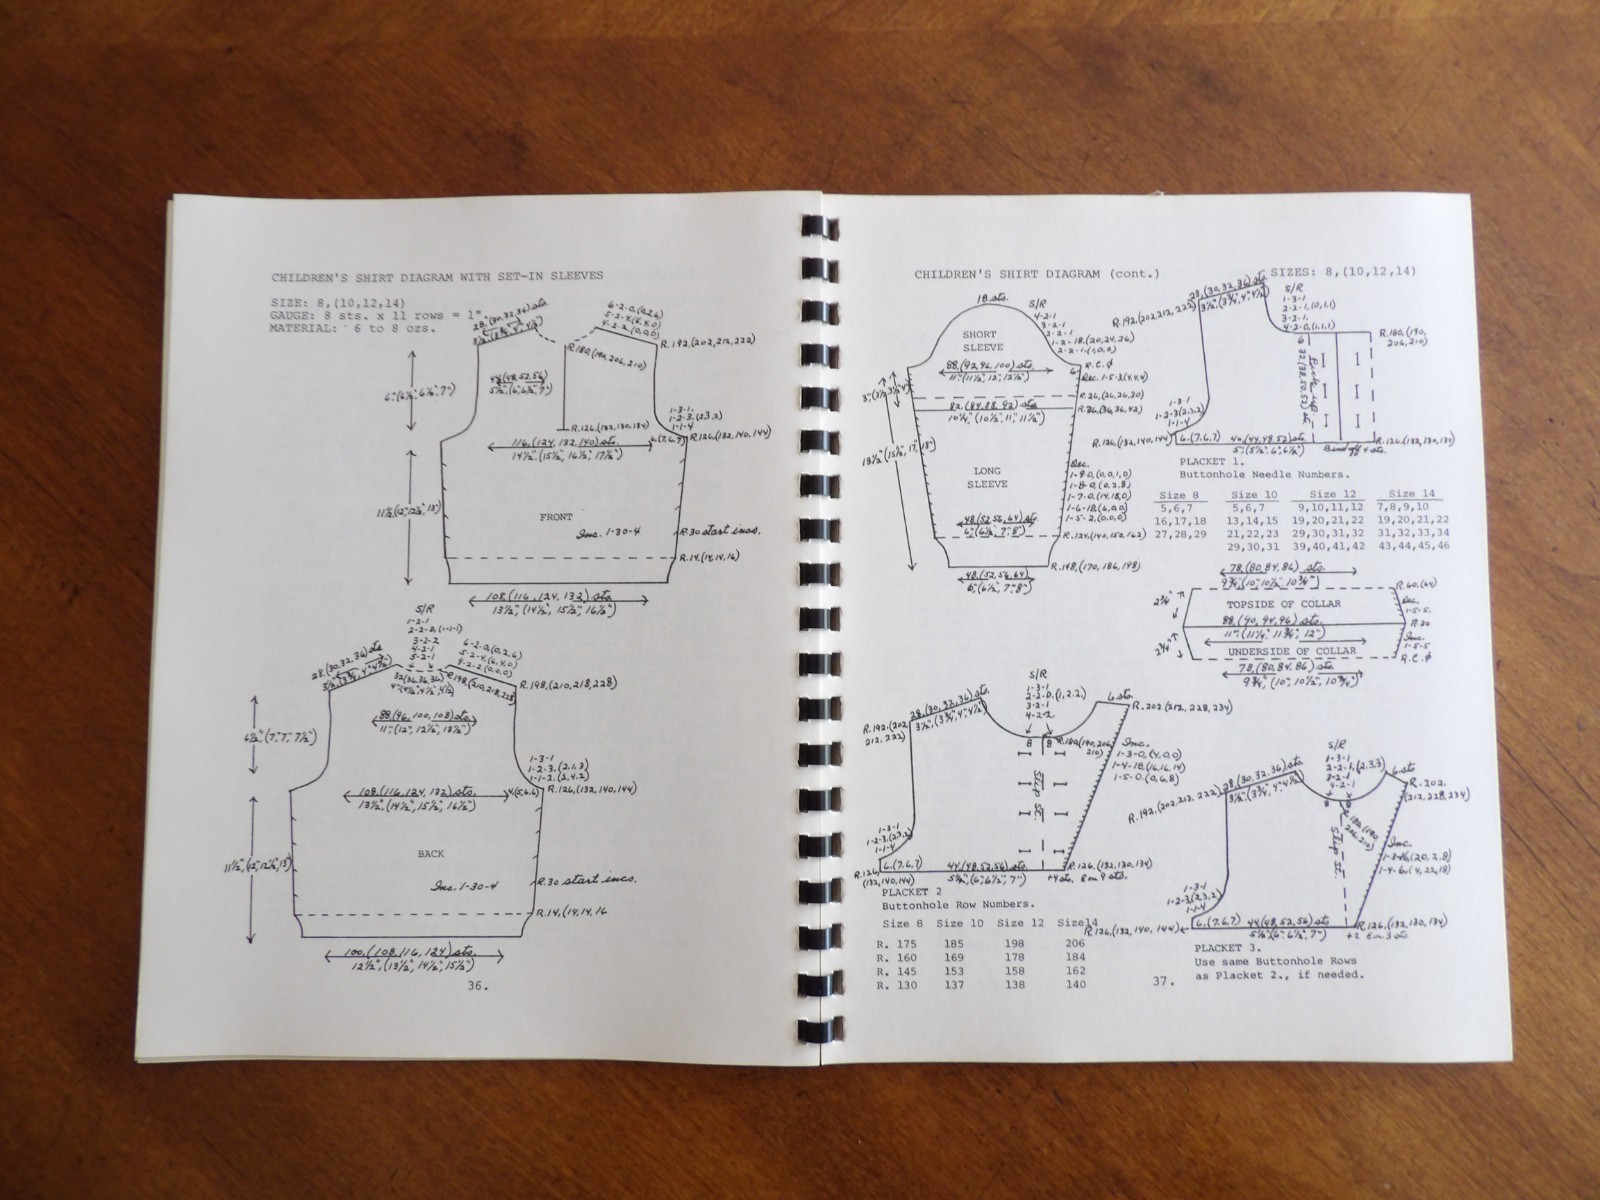 CHILDREN'S SHIRT DIAGRAM WITH SET-IN SLEEVES
SIZE: 8,(10,12,14)
GAUGE: 8 sts. x 11 rows = 1"
MATERIAL: 6 to 8 ozs.
R.192.(202,212,222)
R.180,(190,206,210)
44(48,52,56)
5½"(6",6½",7")
6"(6½",6½",7")
1-3-1.
1-2-3.(2,3,2)
1-1-4
R.126.(132,130,134)
R.126.(132,140,144)
6.(7,6,7)
116,(124,132,140)sts.
14½".(15½", 16½", 17½")
FRONT
Inc. 1-30-4
R.30 start incs.
R.14.(14,14,16)
108,(116,124,132) sts.
13½", (14½", 15½", 16½")
S/R
1-2-1
2-2-0,(1-1-1)
3-2-2
4-2-1
5-2-1
6-2-0,(0,2,6)
5-2-4,(6,4,0)
28,(30,32,36)sts
3½",(3¾",4",4½")
32(36,36,36)
R.198,(210,218,228)
R.198,(210,218,228)
88,(96,100,108)sts.
11",(12",12½",13½")
6½",(7",7",7½")
1-3-1
1-2-3.(2,1,3)
1-1-2.(2,4,2)
108.(116,124,132) sts.
4.(5,6,6)
R.126,(132,140,144)
13½",(14½",15½",16½")
BACK
Inc. 1-30-4
R.30 start incs.
R.14.(14,14,16
100,(108,116,124)sts.
12½",(13½",14½",15½")
36.
CHILDREN'S SHIRT DIAGRAM (cont.)
SIZES: 8,(10,12,14)
18 sts.
S/R
4-2-1
3-2-1
2-2-1
1-2-18,(20,24,26)
2-2-1.(1,0,0)
SHORT
SLEEVE
88,(92,96,100) sts.
11",(11½",12",12½")
R.C.∅
Dec. 1-5-3(4,4,4)
R.26,(26,26,30)
82,(84,88,92) sts
10¼",(10½",11",11½")
R.36,(36,36,42)
13½"(15½",17",18")
LONG
SLEEVE
Dec.
1-9-0,(0,0,1,0)
1-8-0,(0,2,8)
1-7-0,(14,18,0)
1-6-18,(6,0,0)
1-5-2,(0,0,0)
48,(52,56,64) sts.
6",(6½",7",8")
R.134,(140,152,162)
R.148,(170,186,198)
48,(52,56,64)
6",(6½",7",8")
28,(30,32,36) sts.
3½",(3¾",4",4½")
R.192.(202,212,222)
S/R
1-3-1
2-2-1,(0,1,1)
3-2-1.
4-2-0,(1,1,1)
R.180,(190,
206,210)
Pick up
32(38,50,52) st.
1-3-1
1-2-3(2,3,2)
1-1-4
R.126,(132,140,144)
6.(7,6,7)
40,(44,48,52)sts.
5",(5½",6",6½")
Bind off 4 sts.
R.126,(132,130,134)
PLACKET 1.
Buttonhole Needle Numbers.
Size 8 Size 10 Size 12 Size 14
5,6,7 5,6,7 9,10,11,12 7,8,9,10
16,17,18 13,14,15 19,20,21,22 19,20,21,22
27,28,29 21,22,23 29,30,31,32 31,32,33,34
29,30,31 39,40,41,42 43,44,45,46
78,(80,84,86) sts.
9¾",(10",10½",10¾")
R.60,(64)
2¾"
TOPSIDE OF COLLAR
Dec.
1-5-5.
88,(90,94,96) sts.
R.30
11",(11¼",11¾",12")
Inc.
1-5-5
2¾"
UNDERSIDE OF COLLAR
R.C.∅
78,(80,84,86) sts.
9¾",(10",10½",10¾")
S/R
1-3-1
2-2-0,(1,2,2)
3-2-1
4-2-2
28,(30,32,36) sts.
3½",(3¾",4",4½")
6 sts.
R.202.(212,228,234)
R.192.(202
212,222)
8 8
R.180,(190,206
210)
Inc.
1-3-0,(4,0,0)
1-4-18,(16,16,14)
1-5-0,(0,6,8)
Slip st.
1-3-1
1-2-3.(2,3,2)
1-1-4
R.126
(132,140,144)
6.(7,6,7)
44(48,52,56)sts.
5½",(6",6½",7")
R.126,(132,130,134)
+4 sts, E on 9 sts.
PLACKET 2
Buttonhole Row Numbers.
Size 8 Size 10 Size 12 Size14
R. 175 185 198 206
R. 160 169 178 184
R. 145 153 158 162
R. 130 137 138 140
S/R
1-3-1
2-2-1,(2,3,3)
3-2-1
4-2-1
28,(30,32,36) sts.
3½",(3¾",4",4½")
6 sts
R.202.
(212,228,234)
R.192,(202,212,222)
R.180,(190
206,210)
Slip st.
Inc.
1-4-6,(4,22,18)
1-3-1
1-2-3(2,3,2)
1-1-4
R.126,(132,140,144)
6.(7,6,7)
44(48,52,56) sts
R.126,(132,130,134)
+2 E on 3 sts
PLACKET 3.
Use same Buttonhole Rows
as Placket 2., if needed.
37.